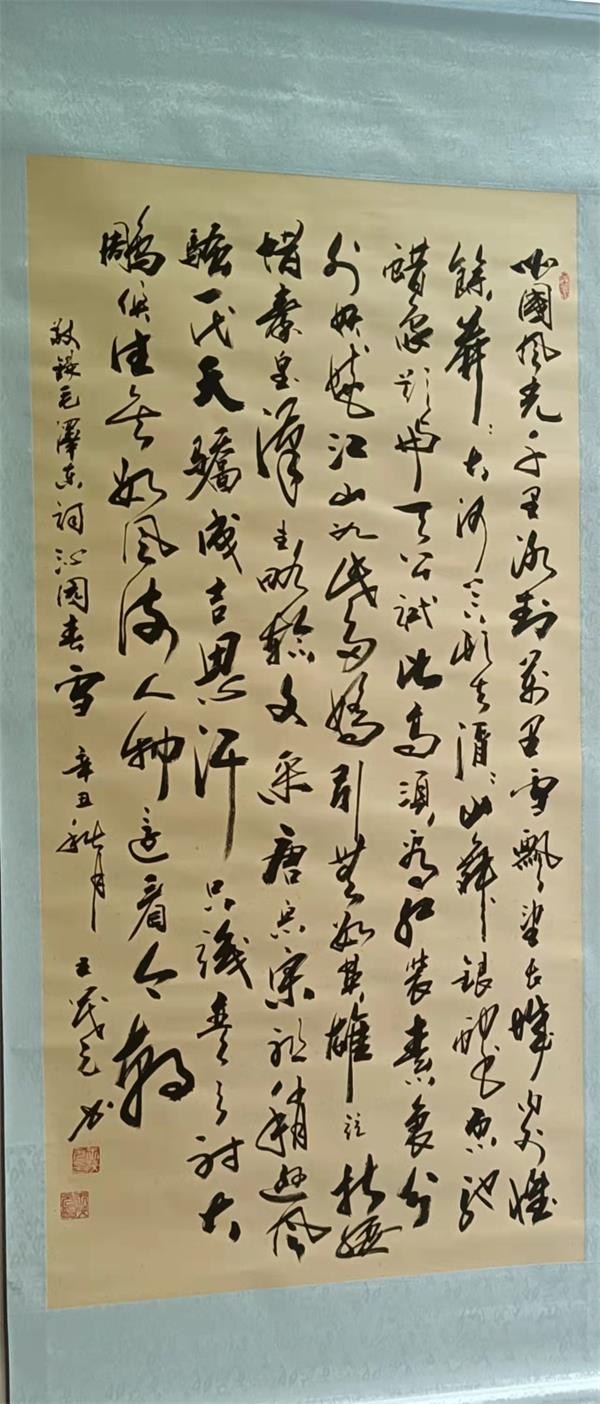 北國風光千里冰封萬里雪飄望長城内外惟
餘莽莽大河上下頓失滔滔山舞銀蛇原馳
蜡象欲与天公試比高須看红裝素裹分
外妖嬈江山如此多嬌引無數英雄竞折腰
惜秦皇漢武略輸文采唐宗宋祖稍遜風
騷一代天驕成吉思汗只識彎弓射大
鵰俱往矣數風流人物還看今朝
敬録毛澤东词沁园春雪 辛丑秋月 王茂元书